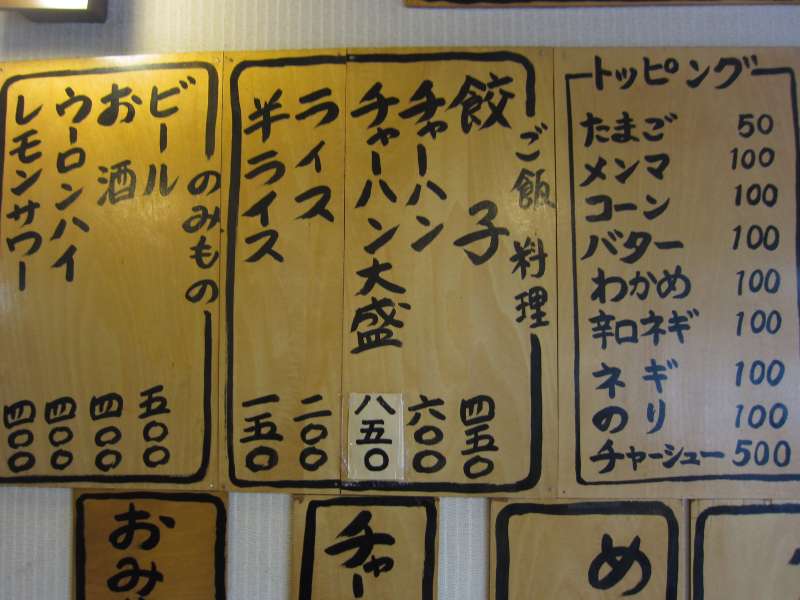 トッピング
たまご 50
メンマ 100
コーン 100
バター 100
わかめ 100
辛口ネギ 100
ネギ 100
のり 100
チャーシュー 500
ご飯 料理
餃子 四五〇
チャーハン 六〇〇
チャーハン大盛 八五〇
ライス 二〇〇
半ライス 一五〇
のみもの
ビール 五〇〇
お酒 四〇〇
ウーロンハイ 四〇〇
レモンサワー 四〇〇
め
チャー
おみ